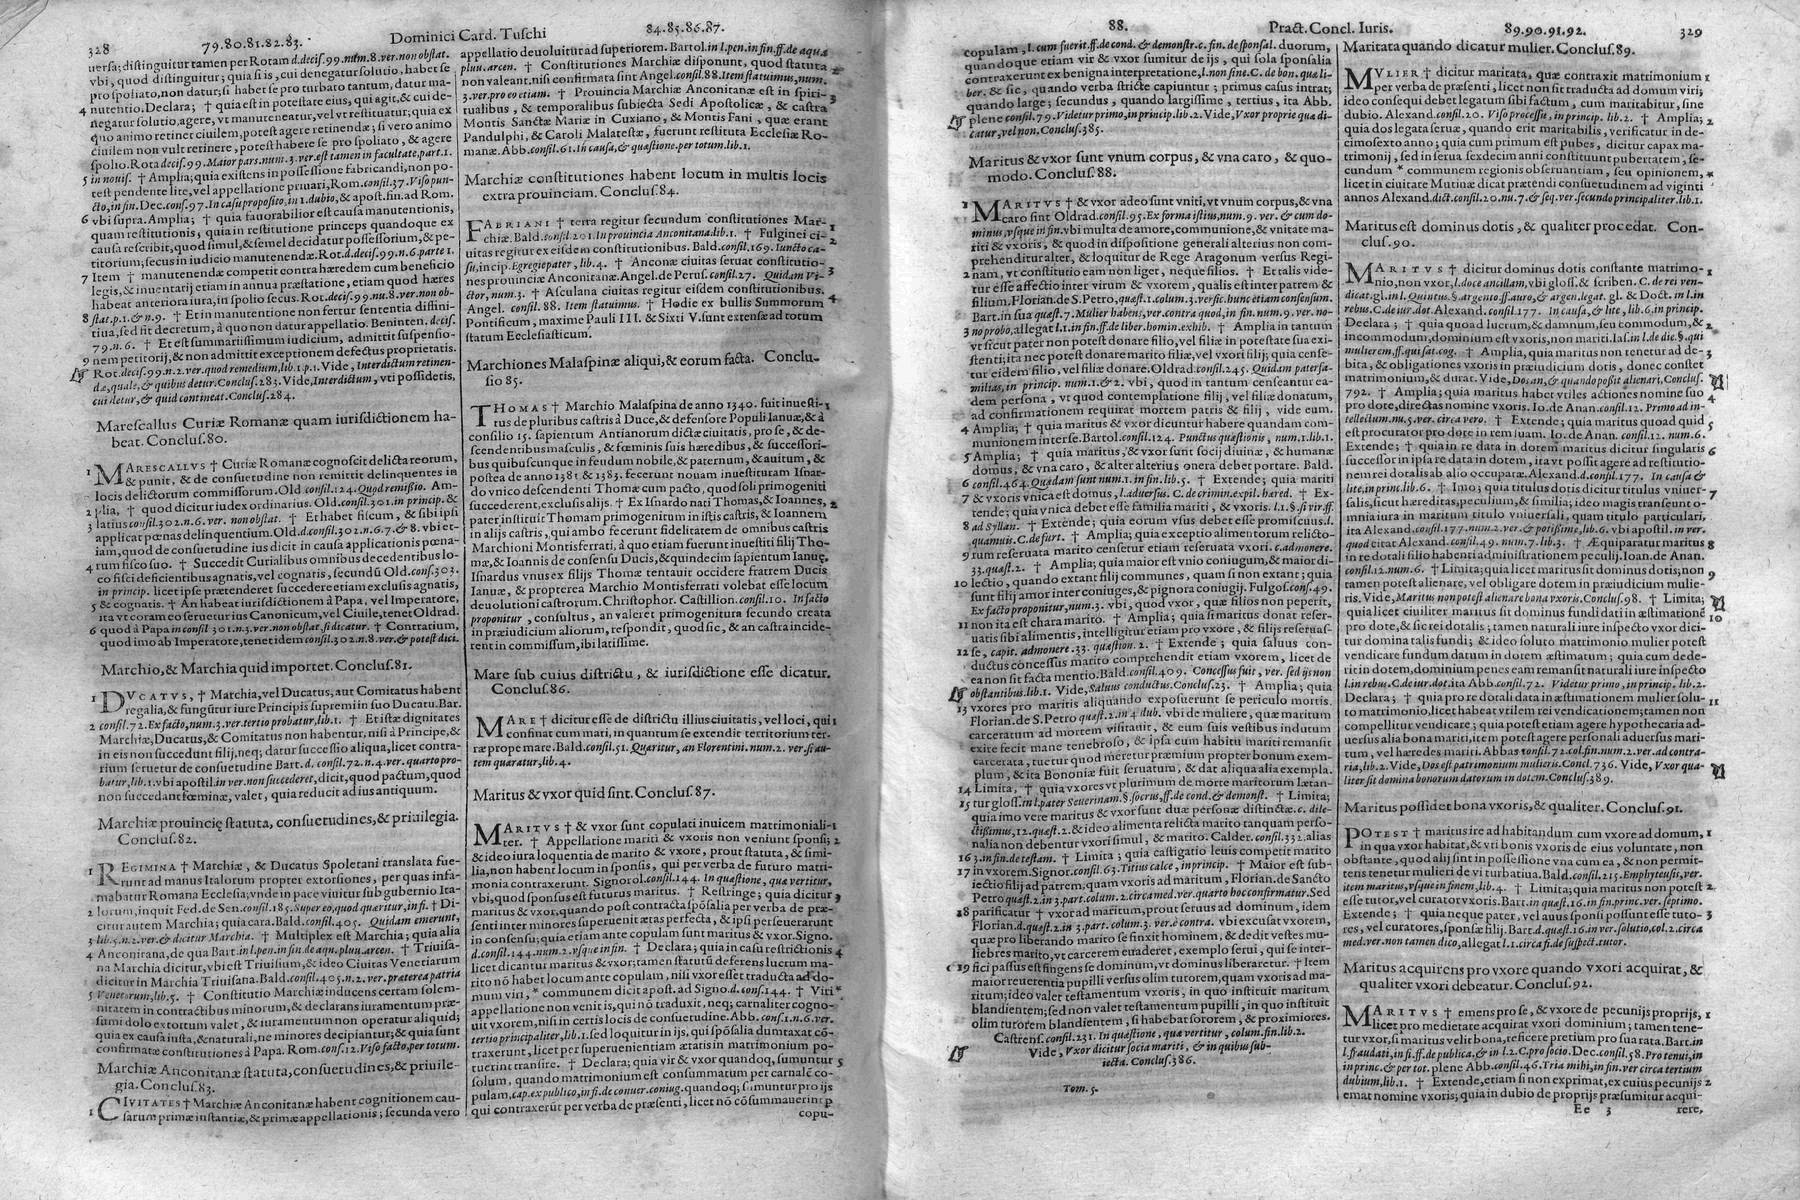 328
79.80.81.82.83.
Dominici Card. Tuschi
84.85.86.87.
uersa; distinguitur tamen per Rotam d. decis. 99. num. 8. ver. non obstat.
vbi, quod distinguitur; quia si is, cui denegatur solutio, habet se
pro spoliato, non datur; si habet se pro turbato tantum, datur ma-
4 nutentio. Declara; † quia est in potestate eius, qui agit, & cui de-
negatur solutio, agere, vt manuteneatur, vel vt restituatur; quia ex
quo animo retinet ciuilem, potest agere retinendæ; si vero animo
ciuilem non vult retinere, potest habere se pro spoliato, & agere
spolio. Rota decis. 99. Maior pars. num. 3. ver. est tamen in facultate, part. 1.
5 in nouis. † Amplia; quia existens in possessione fabricandi, non po-
test pendente lite, vel appellatione priuari, Rom. consil. 37. Viso pun-
cto, in fin. Dec. cons. 97. In casu proposito, in 1. dubio, & apost. fin. ad Rom.
6 vbi supra. Amplia; † quia fauorabilior est causa manutentionis,
quam restitutionis; quia in restitutione princeps quandoque ex
causa rescribit, quod simul, & semel decidatur possessorium, & pe-
titorium; secus in iudicio manutenendæ. Rot. d. decis. 99. n. 6. parte 1.
7 Item † manutenendæ competit contra hæredem cum beneficio
legis, & inuentarij etiam in annua præstatione, etiam quod hæres
habeat anteriora iura, in spolio secus. Rot. decis. 99. nu. 8. ver. non ob-
8 stat. p. 1. & n. 9. † Et in manutentione non fertur sententia diffini-
tiua, sed fit decretum, à quo non datur appellatio. Beninten. decis.
79. n. 6. † Et est summariissimum iudicium, admittit suspensio-
9 nem petitorij, & non admittit exceptionem defectus proprietatis.
Rot. decis. 99. n. 2. ver. quod remedium, lib. 1. p. 1. Vide, Interdictum retinen-
dæ, quale, & quibus detur. Conclus. 283. Vide, Interdictum, vti possidetis,
cui detur, & quid contineat. Conclus. 284.
Marescallus Curiæ Romanæ quam iurisdictionem ha-
beat. Conclus. 80.
1 MARESCALLVS † Curiæ Romanæ cognoscit delicta reorum,
& punit, & de consuetudine non remittit delinquentes in
locis delictorum commissorum. Old. consil. 124. Quod remissio. Am-
2 plia, † quod dicitur iudex ordinarius. Old. consil. 301. in princip. &
3 latius consil. 302. n. 6. ver. non obstat. † Et habet fiscum, & sibi ipsi
applicat pœnas delinquentium. Old. d. consil. 301. n. 6. 7. & 8. vbi et-
iam, quod de consuetudine ius dicit in causa applicationis pœna-
4 rum fisco suo. † Succedit Curialibus omnibus decedentibus lo-
co fisci deficientibus agnatis, vel cognatis, secundũ Old. cons. 303.
in princip. licet ipse prætenderet succedere etiam exclusis agnatis,
5 & cognatis. † An habeat iurisdictionem à Papa, vel Imperatore,
ita vt coram eo seruetur ius Canonicum, vel Ciuile, tenet Oldrad.
6 quod à Papa in consil. 301. n. 3. ver. non obstat. si dicatur. † Contrarium,
quod imo ab Imperatore, tenet idem consil. 302. n. 8. ver. & potest dici.
Marchio, & Marchia quid importet. Conclus. 81.
1 DVCATVS, † Marchia, vel Ducatus, aut Comitatus habent
regalia, & fungitur iure Principis supremi in suo Ducatu. Bar.
2 consil. 72. Ex facto, num. 3. ver. tertio probatur, lib. 1. † Et istæ dignitates
Marchiæ, Ducatus, & Comitatus non habentur, nisi à Principe, &
in eis non succedunt filij, neq; datur successio aliqua, licet contra-
rium seruetur de consuetudine Bart. d. consil. 72. n. 4. ver. quarto pro-
batur, lib. 1. vbi apostil. in ver. non succederet, dicit, quod pactum, quod
non succedant fœminæ, valet, quia reducit ad ius antiquum.
Marchiæ prouincię statuta, consuetudines, & priuilegia.
Conclus. 82.
1 REGIMINA † Marchiæ, & Ducatus Spoletani translata fue-
runt ad manus Italorum propter extorsiones, per quas infa-
mabatur Romana Ecclesia; vnde in pace viuitur sub gubernio Ita-
2 lorum, inquit Fed. de Sen. consil. 185. Super eo, quod quæritur, in fi. † Di-
citur autem Marchia; quia cara. Bald. consil. 405. Quidam emerunt,
3 lib. 5. n. 2. ver. & dicitur Marchia. † Multiplex est Marchia; quia alia
4 Anconitana, de qua Bart. in l. pen. in fin. de aqu. pluu. arcen. † Triuisa-
na Marchia dicitur, vbi est Triuisium, & ideo Ciuitas Venetiarum
dicitur in Marchia Triuisana. Bald. consil. 405. n. 2. ver. præterea patria
5 Venetorum, lib. 5. † Constitutio Marchiæ inducens certam solem-
nitatem in contractibus minorum, & declarans iuramentum præ-
sumi dolo extortum valet, & iuramentum non operatur aliquid;
quia ex causa iusta, & naturali, ne minores decipiantur; & quia sunt
confirmatæ constitutiones à Papa. Rom. cons. 12. Viso facto, per totum.
Marchiæ Anconitanæ statuta, consuetudines, & priuile-
gia. Conclus. 83.
1 CIVITATES † Marchiæ Anconitanæ habent cognitionem cau-
sarum primæ instantiæ, & primæ appellationis; secunda vero
appellatio deuoluitur ad superiorem. Bartol. in l. pen. in fin. ff. de aqua
pluu. arcen. † Constitutiones Marchiæ disponunt, quod statuta 2
non valeant. nisi confirmata sint Angel. consil. 88. Item statuimus, num.
3. ver. pro eo etiam. † Prouincia Marchiæ Anconitanæ est in spiri- 3
tualibus, & temporalibus subiecta Sedi Apostolicæ, & castra
Montis Sanctæ Mariæ in Cuxiano, & Montis Fani, quæ erant
Pandulphi, & Caroli Malatestæ, fuerunt restituta Ecclesiæ Ro-
manæ. Abb. consil. 61. In causa, & quæstione. per totum. lib. 1.
Marchiæ constitutiones habent locum in multis locis
extra prouinciam. Conclus. 84.
FABRIANI † terra regitur secundum constitutiones Mar- 1
chiæ. Bald. consil. 201. In prouincia Anconitana. lib. 1. † Fulginei ci- 2
uitas regitur ex eisdem constitutionibus. Bald. consil. 169. Iuncto ca-
su, incip. Egregie pater, lib. 4. † Anconæ ciuitas seruat constitutio-
nes prouinciæ Anconitanæ. Angel. de Perus. consil. 27. Quidam Vi- 3
ctor, num. 3. † Asculana ciuitas regitur eisdem constitutionibus.
Angel. consil. 88. Item statuimus. † Hodie ex bullis Summorum 4
Pontificum, maxime Pauli III. & Sixti V. sunt extensæ ad totum
statum Ecclesiasticum.
Marchiones Malaspinæ aliqui, & eorum facta. Conclu-
sio 85.
THOMAS † Marchio Malaspina de anno 1340. fuit inuesti- 1
tus de pluribus castris à Duce, & defensore Populi Ianuæ, & à
consilio 15. sapientum Antianorum dictæ ciuitatis, pro se, & de-
scendentibus masculis, & fœminis suis hæredibus, & successori-
bus quibuscunque in feudum nobile, & paternum, & auitum, &
postea de anno 1381. & 1383. fecerunt nouam inuestituram Isnar-
do vnico descendenti Thomæ cum pacto, quod soli primogeniti
succederent, exclusis alijs. † Ex Isnardo nati Thomas, & Ioannes, 2
pater instituit Thomam primogenitum in istis castris, & Ioannem
in alijs castris, qui ambo fecerunt fidelitatem de omnibus castris
Marchioni Montisferrati, à quo etiam fuerunt inuestiti filij Tho-
mæ, & Ioannis de consensu Ducis, & quindecim sapientum Ianuę,
Isnardus vnus ex filijs Thomæ tentauit occidere fratrem Ducis
Ianuæ, & propterea Marchio Montisferrati volebat esse locum
deuolutioni castrorum. Christophor. Castillion. consil. 10. In facto
proponitur, consultus, an valeret primogenitura secundo creata
in præiudicium aliorum, respondit, quod sic, & an castra incide-
rent in commissum, ibi latissime.
Mare sub cuius districtu, & iurisdictione esse dicatur.
Conclus. 86.
MARE † dicitur esse de districtu illius ciuitatis, vel loci, qui 1
confinat cum mari, in quantum se extendit territorium ter-
ræ prope mare. Bald. consil. 51. Quæritur, an Florentini. num. 2. ver. si au-
tem quæratur, lib. 4.
Maritus & vxor quid sint. Conclus. 87.
MARITVS † & vxor sunt copulati inuicem matrimoniali- 1
ter. † Appellatione mariti & vxoris non veniunt sponsi; 2
& ideo iura loquentia de marito & vxore, prout statuta, & simi-
lia, non habent locum in sponsis, qui per verba de futuro matri-
monia contraxerunt. Signorol. consil. 144. In quæstione, qua vertitur,
vbi, quod sponsus est futurus maritus. † Restringe; quia dicitur 3
maritus & vxor, quando post contracta spõsalia per verba de præ-
senti inter minores superuenit ætas perfecta, & ipsi perseuerant
in consensu; quia etiam ante copulam sunt maritus & vxor. Signo.
d. consil. 144. num. 2. vsque in fin. † Declara; quia in casu restrictionis 4
licet dicantur maritus & vxor; tamen statutũ deferens lucrum ma-
rito nõ habet locum ante copulam, nisi vxor esset traducta ad do-
mum viri, * communem dicit apost. ad Signo. d. cons. 144. † Viri *
appellatione non venit is, qui nõ traduxit, neq; carnaliter cogno-
uit vxorem, nisi in certis locis de consuetudine. Abb. cons. 1. n. 6. ver.
tertio principaliter, lib. 1. sed loquitur in ijs, qui spõsalia dumtaxat cõ-
traxerunt, licet per superuenientiam ætatis in matrimonium po-
tuerint transire. † Declara; quia vir & vxor quandoq; sumuntur 5
solum, quando matrimonium est consummatum per carnalẽ co-
pulam, cap. ex publico, in fi. de conuer. coniug. quandoq; sumuntur pro ijs
qui contraxerũt per verba de præsenti, licet nõ cõsummauerint p
copu-
88.
Pract. Concl. Iuris.
89.90.91.92.
329
copulam, l. cum fuerit. ff. de cond. & demonstr. c. fin. de sponsal. duorum,
quandoque etiam vir & vxor sumitur de ijs, qui sola sponsalia
contraxerunt ex benigna interpretatione, l. non sine. C. de bon. quæ li-
ber. & sic, quando verba stricte capiuntur; primus casus intrat;
quando large; secundus, quando largissime, tertius, ita Abb.
plene consil. 79. Videtur primo, in princip. lib. 2. Vide, Vxor proprie quæ di-
catur, vel non. Conclus. 385.
Maritus & vxor sunt vnum corpus, & vna caro, & quo-
modo. Conclus. 88.
1 MARITVS † & vxor adeo sunt vniti, vt vnum corpus, & vna
caro sint Oldrad. consil. 95. Ex forma istius, num. 9. ver. & cum do-
minus, vsque in fin. vbi multa de amore, communione, & vnitate ma-
riti & vxoris, & quod in dispositione generali alterius non com-
prehenditur alter, & loquitur de Rege Aragonum versus Regi-
2 nam, vt constitutio eam non liget, neque filios. † Et talis vide-
tur esse affectio inter virum & vxorem, qualis est inter patrem &
filium. Florian. de S. Petro, quæst. 1. colum. 3. versic. hunc etiam consensum.
Bart. in sua quæst. 7. Mulier habens, ver. contra quod, in fin. num. 9. ver. no-
3 no probo, allegat l. 1. in fin. ff. de liber. homin. exhib. † Amplia in tantum
vt sicut pater non potest donare filio, vel filiæ in potestate sua exi-
stenti; ita nec potest donare marito filiæ, vel vxori filij; quia cense-
tur eidem filio, vel filiæ donare. Oldrad. consil. 245. Quidam paterfa-
milias, in princip. num. 1. & 2. vbi, quod in tantum censeantur ea-
dem persona, vt quod contemplatione filij, vel filiæ donatum,
ad confirmationem requirat mortem patris & filij, vide eum.
4 Amplia; † quia maritus & vxor dicuntur habere quandam com-
munionem inter se. Bartol. consil. 124. Punctus quæstionis, num. 1. lib. 1.
5 Amplia; † quia maritus, & vxor sunt socij diuinæ, & humanæ
domus, & vna caro, & alter alterius onera debet portare. Bald.
6 consil. 464. Quædam sunt num. 1. in fin. lib. 5. † Extende; quia mariti
7 & vxoris vnica est domus, l. aduersus. C. de crimin. expil. hæred. † Ex-
tende; quia vnica debet esse familia mariti, & vxoris. l. 1. §. si vir. ff.
8 ad Syllan. † Extende; quia eorum vsus debet esse promiscuus. l.
quamuis. C. de furt. † Amplia; quia exceptio alimentorum relicto-
9 rum reseruata marito censetur etiam reseruata vxori. c. admonere.
33. quæst. 2. † Amplia; quia maior est vnio coniugum, & maior di-
10 lectio, quando extant filij communes, quam si non extant; quia
sunt filij amor inter coniuges, & pignora coniugij. Fulgos. cons. 49.
Ex facto proponitur, num. 3. vbi, quod vxor, quæ filios non peperit,
11 non ita est chara marito. † Amplia; quia si maritus donat reser-
uatis sibi alimentis, intelligitur etiam pro vxore, & filijs reseruas-
12 se, capit. admonere. 33. quæstion. 2. † Extende; quia saluus con-
ductus concessus marito comprehendit etiam vxorem, licet de
ea non sit facta mentio. Bald. consil. 409. Concessus fuit, ver. sed ijs non
obstantibus. lib. 1. Vide, Saluus conductus. Conclus. 23. † Amplia; quia
13 vxores pro maritis aliquando exposuerunt se periculo mortis.
Florian. de S. Petro quæst. 2. in 4. dub. vbi de muliere, quæ maritum
carceratum ad mortem visitauit, & eum suis vestibus indutum
exire fecit mane tenebroso, & ipsa cum habitu mariti remansit
carcerata, tuetur quod meretur præmium propter bonum exem-
plum, & ita Bononiæ fuit seruatum, & dat aliqua alia exempla.
14 Limita, † quia vxores vt plurimum de morte maritorum lætan-
15 tur gloss. in l. pater Seuerinam. §. socrus, ff. de cond. & demonst. † Limita;
quia imo vere maritus & vxor sunt duæ personæ distinctæ. c. dile-
ctissimus, 12. quæst. 2. & ideo alimenta relicta marito tanquam perso-
nalia non debentur vxori simul, & marito. Calder. consil. 332. alias
16 3. in fin. de testam. † Limita; quia castigatio leuis competit marito
17 in vxorem. Signor. consil. 63. Titius calce, in princip. † Maior est sub-
iectio filij ad patrem, quam vxoris ad maritum, Florian. de Sancto
Petro quæst. 2. in 3. part. colum. 2. circa med. ver. quarto hoc confirmatur. Sed
18 parificatur † vxor ad maritum, prout seruus ad dominum, idem
Florian. d. quæst. 2. in 3. part. colum. 3. ver. è contra. vbi excusat vxorem,
quæ pro liberando marito se finxit hominem, & dedit vestes mu-
liebres marito, vt carcerem euaderet, exemplo serui, qui se inter-
19 fici passus est fingens se dominum, vt dominus liberaretur. † Item
maior reuerentia pupilli versus olim tutorem, quam vxoris ad ma-
ritum; ideo valet testamentum vxoris, in quo instituit maritum
blandientem; sed non valet testamentum pupilli, in quo instituit
olim tutorem blandientem, si habebat sororem, & proximiores.
Castrens. consil. 231. In quæstione, qua vertitur, colum. fin. lib. 2.
Vide, Vxor dicitur socia mariti, & in quibus sub-
iecta. Conclus. 386.
Tom. 5.
Maritata quando dicatur mulier. Conclus. 89.
MVLIER † dicitur maritata, quæ contraxit matrimonium 1
per verba de præsenti, licet non sit traducta ad domum viri;
ideo consequi debet legatum sibi factum, cum maritabitur, sine
dubio. Alexand. consil. 20. Viso processu, in princip. lib. 2. † Amplia; 2
quia dos legata seruæ, quando erit maritabilis, verificatur in de-
cimosexto anno; quia cum primum est pubes, dicitur capax ma-
trimonij, sed in serua sexdecim anni constituunt pubertatem, se-
cundum * communem regionis obseruantiam, seu opinionem, *
licet in ciuitate Mutinæ dicat prætendi consuetudinem ad viginti
annos Alexand. dict. consil. 20. nu. 7. & seq. ver. secundo principaliter. lib. 1.
Maritus est dominus dotis, & qualiter procedat. Con-
clus. 90.
MARITVS † dicitur dominus dotis constante matrimo- 1
nio, non vxor, l. doce ancillam, vbi gloss. & scriben. C. de rei ven-
dicat. gl. in l. Quintus. §. argento. ff. auro, & argen. legat. gl. & Doct. in l. in
rebus. C. de iur. dot. Alexand. consil. 177. In causa, & lite, lib. 6. in princip.
Declara; † quia quoad lucrum, & damnum, seu commodum, & 2
incommodum, dominium est vxoris, non mariti. Ias. in l. de die. §. qui
mulierem, ff. qui sat. cog. † Amplia, quia maritus non tenetur ad de- 3
bita, & obligationes vxoris in præiudicium dotis, donec constet
matrimonium, & durat. Vide, Dos an, & quando possit alienari, Conclus.
792. † Amplia; quia maritus habet vtiles actiones nomine suo 4
pro dote, directas nomine vxoris. Io. de Anan. consil. 12. Primo ad in-
tellectum. nu. 5. ver. circa vero. † Extende; quia maritus quoad quid 5
est procurator pro dote in rem suam. Io. de Anan. consil. 12. num. 6.
Extende; † quia in re data in dotem maritus dicitur singularis 6
successor in ipsa re data in dotem, ita vt possit agere ad restitutio-
nem rei dotalis ab alio occupatæ. Alexand. d. consil. 177. In causa &
lite, in princ. lib. 6. † Imo; quia titulus dotis dicitur titulus vniuer- 7
salis, sicut hæreditas, peculium, & similia; ideo magis transeunt o-
mnia iura in maritum titulo vniuersali, quam titulo particulari,
ita Alexand. consil. 177. num. 2. ver. & potissime, lib. 6. vbi apostil. in ver.
quod citat Alexand. consil. 49. num. 7. lib. 3. † Æquiparatur maritus 8
in re dotali filio habenti administrationem peculij. Ioan. de Anan.
consil. 12. num. 6. † Limita; quia licet maritus sit dominus dotis; non 9
tamen potest alienare, vel obligare dotem in præiudicium mulie-
ris. Vide, Maritus non potest alienare bona vxoris. Conclus. 98. † Limita;
quia licet ciuiliter maritus sit dominus fundi dati in æstimationẽ 10
pro dote, & sic rei dotalis; tamen naturali iure inspecto vxor dici-
tur domina talis fundi; & ideo soluto matrimonio mulier potest
vendicare fundum datum in dotem æstimatum; quia cum dede-
rit in dotem, dominium penes eam remansit naturali iure inspecto
l. in rebus. C. de iur. dot. ita Abb. consil. 72. Videtur primo, in princip. lib. 2.
Declara; † quia pro re dotali data in æstimationem mulier solu- 11
to matrimonio, licet habeat vtilem rei vendicationem; tamen non
compellitur vendicare; quia potest etiam agere hypothecaria ad-
uersus alia bona mariti, item potest agere personali aduersus mari-
tum, vel hæredes mariti. Abbas consil. 72. col. fin. num. 2. ver. ad contra-
ria, lib. 2. Vide, Dos est patrimonium mulieris. Conclus. 736. Vide, Vxor qua-
liter sit domina bonorum datorum in dotem. Conclus. 389.
Maritus possidet bona vxoris, & qualiter. Conclus. 91.
POTEST † maritus ire ad habitandum cum vxore ad domum, 1
in qua vxor habitat, & vti bonis vxoris de eius voluntate, non
obstante, quod alij sint in possessione vna cum ea, & non permit-
tens tenetur mulieri de vi turbatiua. Bald. consil. 215. Emphyteusis, ver.
item maritus, vsque in finem, lib. 4. † Limita; quia maritus non potest 2
esse tutor, vel curator vxoris. Bart. in quæst. 16. in fin. princ. ver. septimo.
Extende; † quia neque pater, vel auus sponsi possunt esse tuto- 3
res, vel curatores, sponsæ filij. Bart. d. quæst. 16. in ver. solutio, col. 2. circa
med. ver. non tamen dico, allegat l. 1. circa fi. de suspect. tutor.
Maritus acquirens pro vxore quando vxori acquirat, &
qualiter vxori debeatur. Conclus. 92.
MARITVS † emens pro se, & vxore de pecunijs proprijs, 1
licet pro medietate acquirat vxori dominium; tamen tene-
tur vxor, si maritus velit bona, reficere pretium pro sua rata. Bart. in
l. fraudati, in fi. ff. de publica, & in l. 2. C. pro socio. Dec. consil. 58. Pro tenui, in
in princ. & per tot. plene Abb. consil. 46. Tria mihi, in fin. ver. circa tertium
dubium, lib. 1. † Extende, etiam si non exprimat, ex cuius pecunijs 2
emat nomine vxoris; quia in dubio de proprijs præsumitur acqui-
Ee 3
rere,